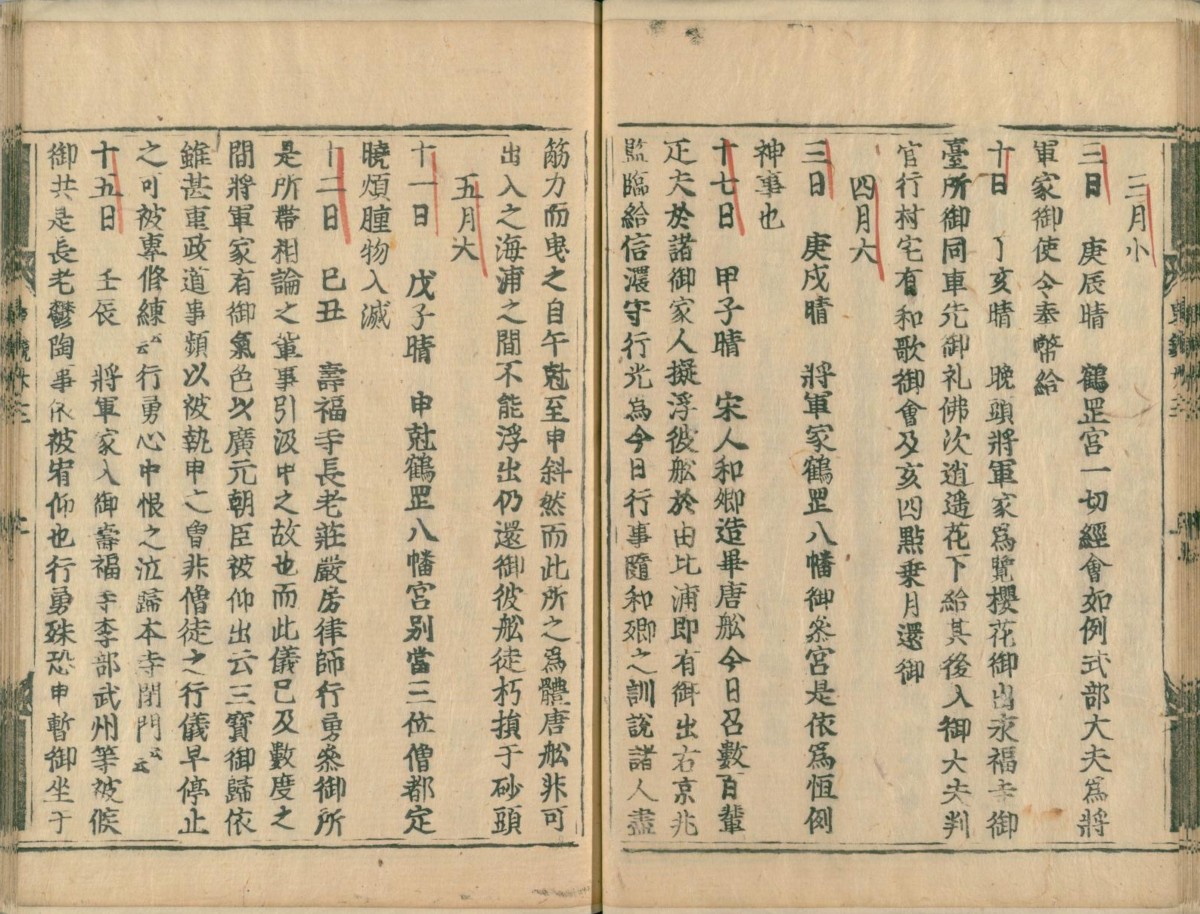 三月小
三日　庚辰晴　鶴罡宮一切經會如例式部大夫爲將
軍家御使令奉幣給
十日　丁亥晴　晩頭將軍家爲覽櫻花御出永福寺御
臺所御同車先御礼佛次逍遥花下給其後入御大夫判
官行村宅有和歌御會及亥四點乗月還御
四月大
三日　庚戌晴　將軍家鶴罡八幡御参宮是依爲恒例
神事也
十七日　甲子晴　宋人和卿造畢唐舩今日召數百輩
疋夫於諸御家人擬浮彼舩於由比浦即有御出右京兆
監臨給信濃守行光爲今日行事隨和卿之訓說諸人盡
筋力而曵之自午尅至申斜然而此所之爲體唐舩非可
出入之海浦之間不能浮出仍還御彼舩徒朽損于砂頭
五月大
十一日　戊子晴　申尅鶴罡八幡宮别當三位僧都定
曉煩腫物入滅
十二日　己丑　壽福寺長老莊嚴房律師行勇参御所
是所帶相論之輩事引汲申之故也而此儀已及數度之
間將軍家有御氣色以廣元朝臣被仰出云三寶御歸依
雖甚重政道事頻以被執申之曾非僧徒之行儀早停止
之可被專修練云云行勇心中恨之泣歸本寺閉門云云
十五日　壬辰　將軍家入御壽福寺李部武州等被候
御共是長老鬱陶事依被宥仰也行勇殊恐申暫御坐于